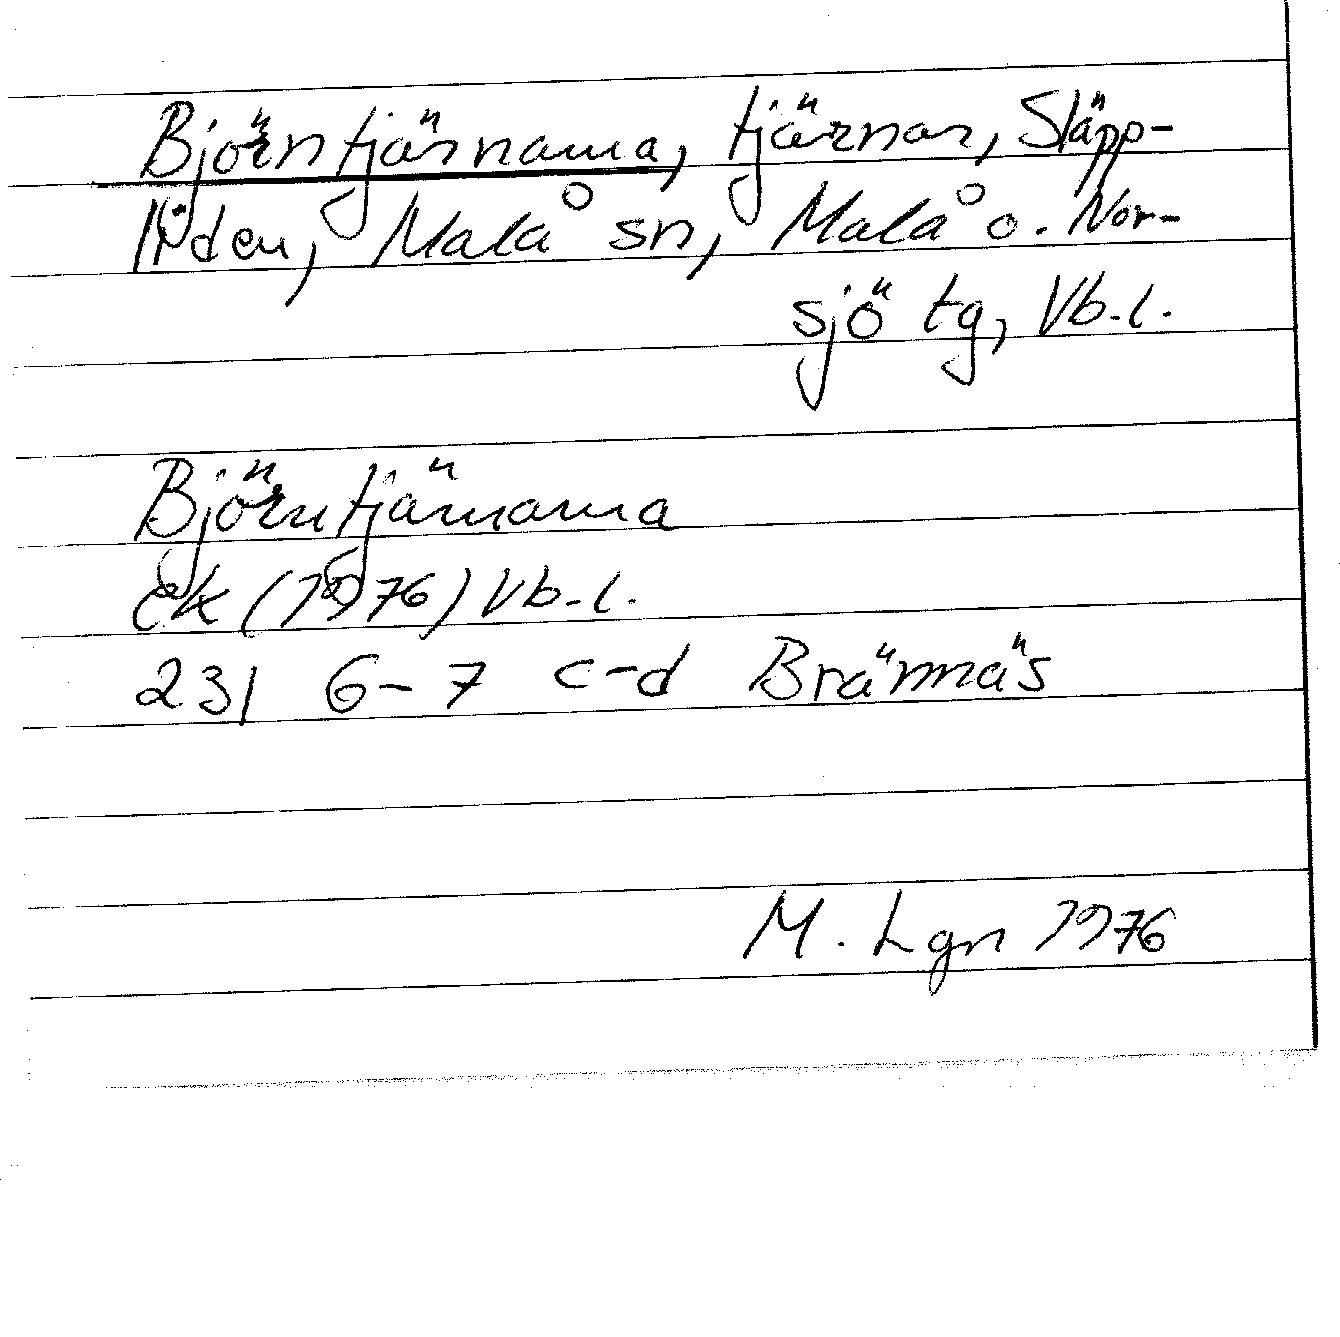 Björntjärnarna, tjärnar, Släpp-
liden, Malå sn, Malå o. Nor-
sjö tg, Vb.l.
Björntjärnarna
Ek (1976) Vb.l.
23I 6-7 c-d Brännäs
M. Lgn 1976